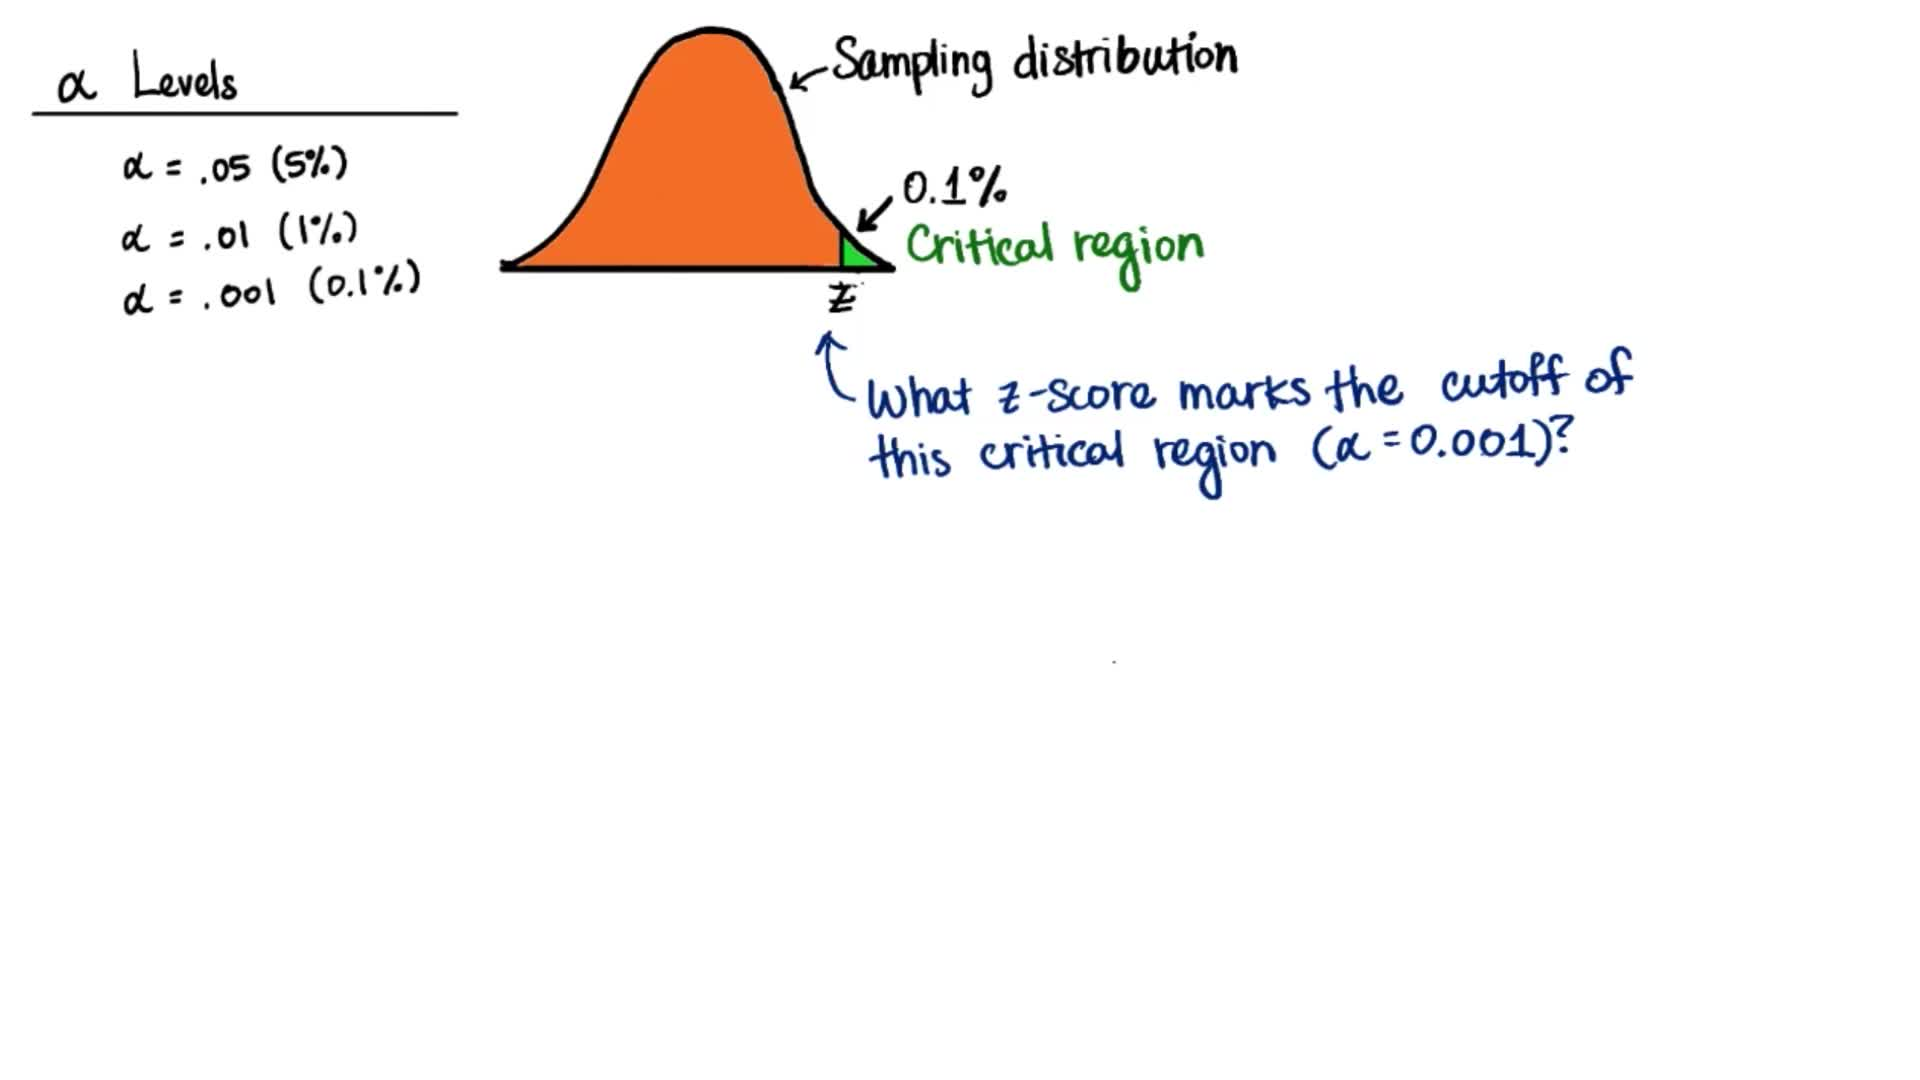 α Levels
α = .05 (5%)
α = .01 (1%)
α = .001 (0.1%)
Sampling distribution
0.1%
Critical region
z
What z-score marks the cutoff of
this critical region (α = 0.001)?